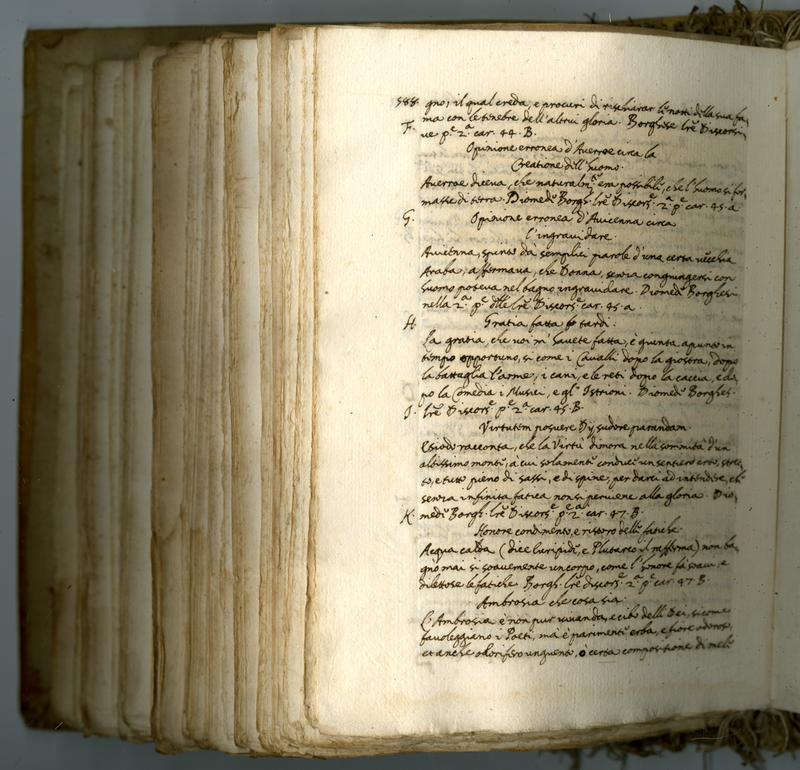 588. gno; il qual creda, e procuri di rischiarar le notti della sua fa,
ma con le tenebre dell'altrui gloria. Borghese lre Discorsi,
F. ue p.e 2.a car. 44. B.
Opinione erronea d'Auerroe circa la
Creatione dell'huomo.
Auerroe diceua, che naturalm.e era possibile, che l'huomo si for,
masse di terra. Diomede Borgh. lre Discors.e 2.a p.e car. 45. a
G. Opinione erronea d'Auicenna circa
l'ingrauidare.
Auicenna, spinto da semplici parole d'una certa uecchia
Araba, affermaua, che Donna, senza congiungersi con
huomo poteua nel bagno ingrauidare. Diomede Borghesi
nella 2.a p.e delle lre Discors.e car. 45. a.
H. Gratia fatta tardi.
La gratia, che uoi m'hauete fatta, è giunta apunto in
tempo opportuno, si come i Caualli dopo la giostra, dopo
la battaglia l'arme, i cani, e le reti dopo la caccia, e do,
po la Comedia i Musici, e gl'Istrioni. Diomede Borghes.
I. lre Discors.e p.e 2.a car. 45. B.
Virtutem posuere Dij sudore parandam.
Esiodo racconta, che la Virtù dimora nella sommità d'un
altissimo monte, a cui solamente conduce un sentiero erto, stret,
to, e tutto pieno di sassi, e di spine, per darci ad intendere, che
senza infinita fatica non si peruiene alla gloria. Dio,
K. mede Borgh. lre Discors.e p.e 2.a car. 47. B.
Honore condimento, e ristoro delle fatiche.
Acqua calda (dice Euripide, e Plutarco il rafferma) non ba,
gnò mai si soauemente un corpo, come l'honore fà soaui, e
dilettose le fatiche. Borgh. lre discors.e 2.a p.e car. 47. B.
Ambrosia che cosa sia.
L'Ambrosia è non pur uiuanda, e cibo delli Dei, si come
fauoleggiano i Poeti, mà è parimente erba, e fiore odoroso,
et anche odorifero unguento, ò certa compositione di mele